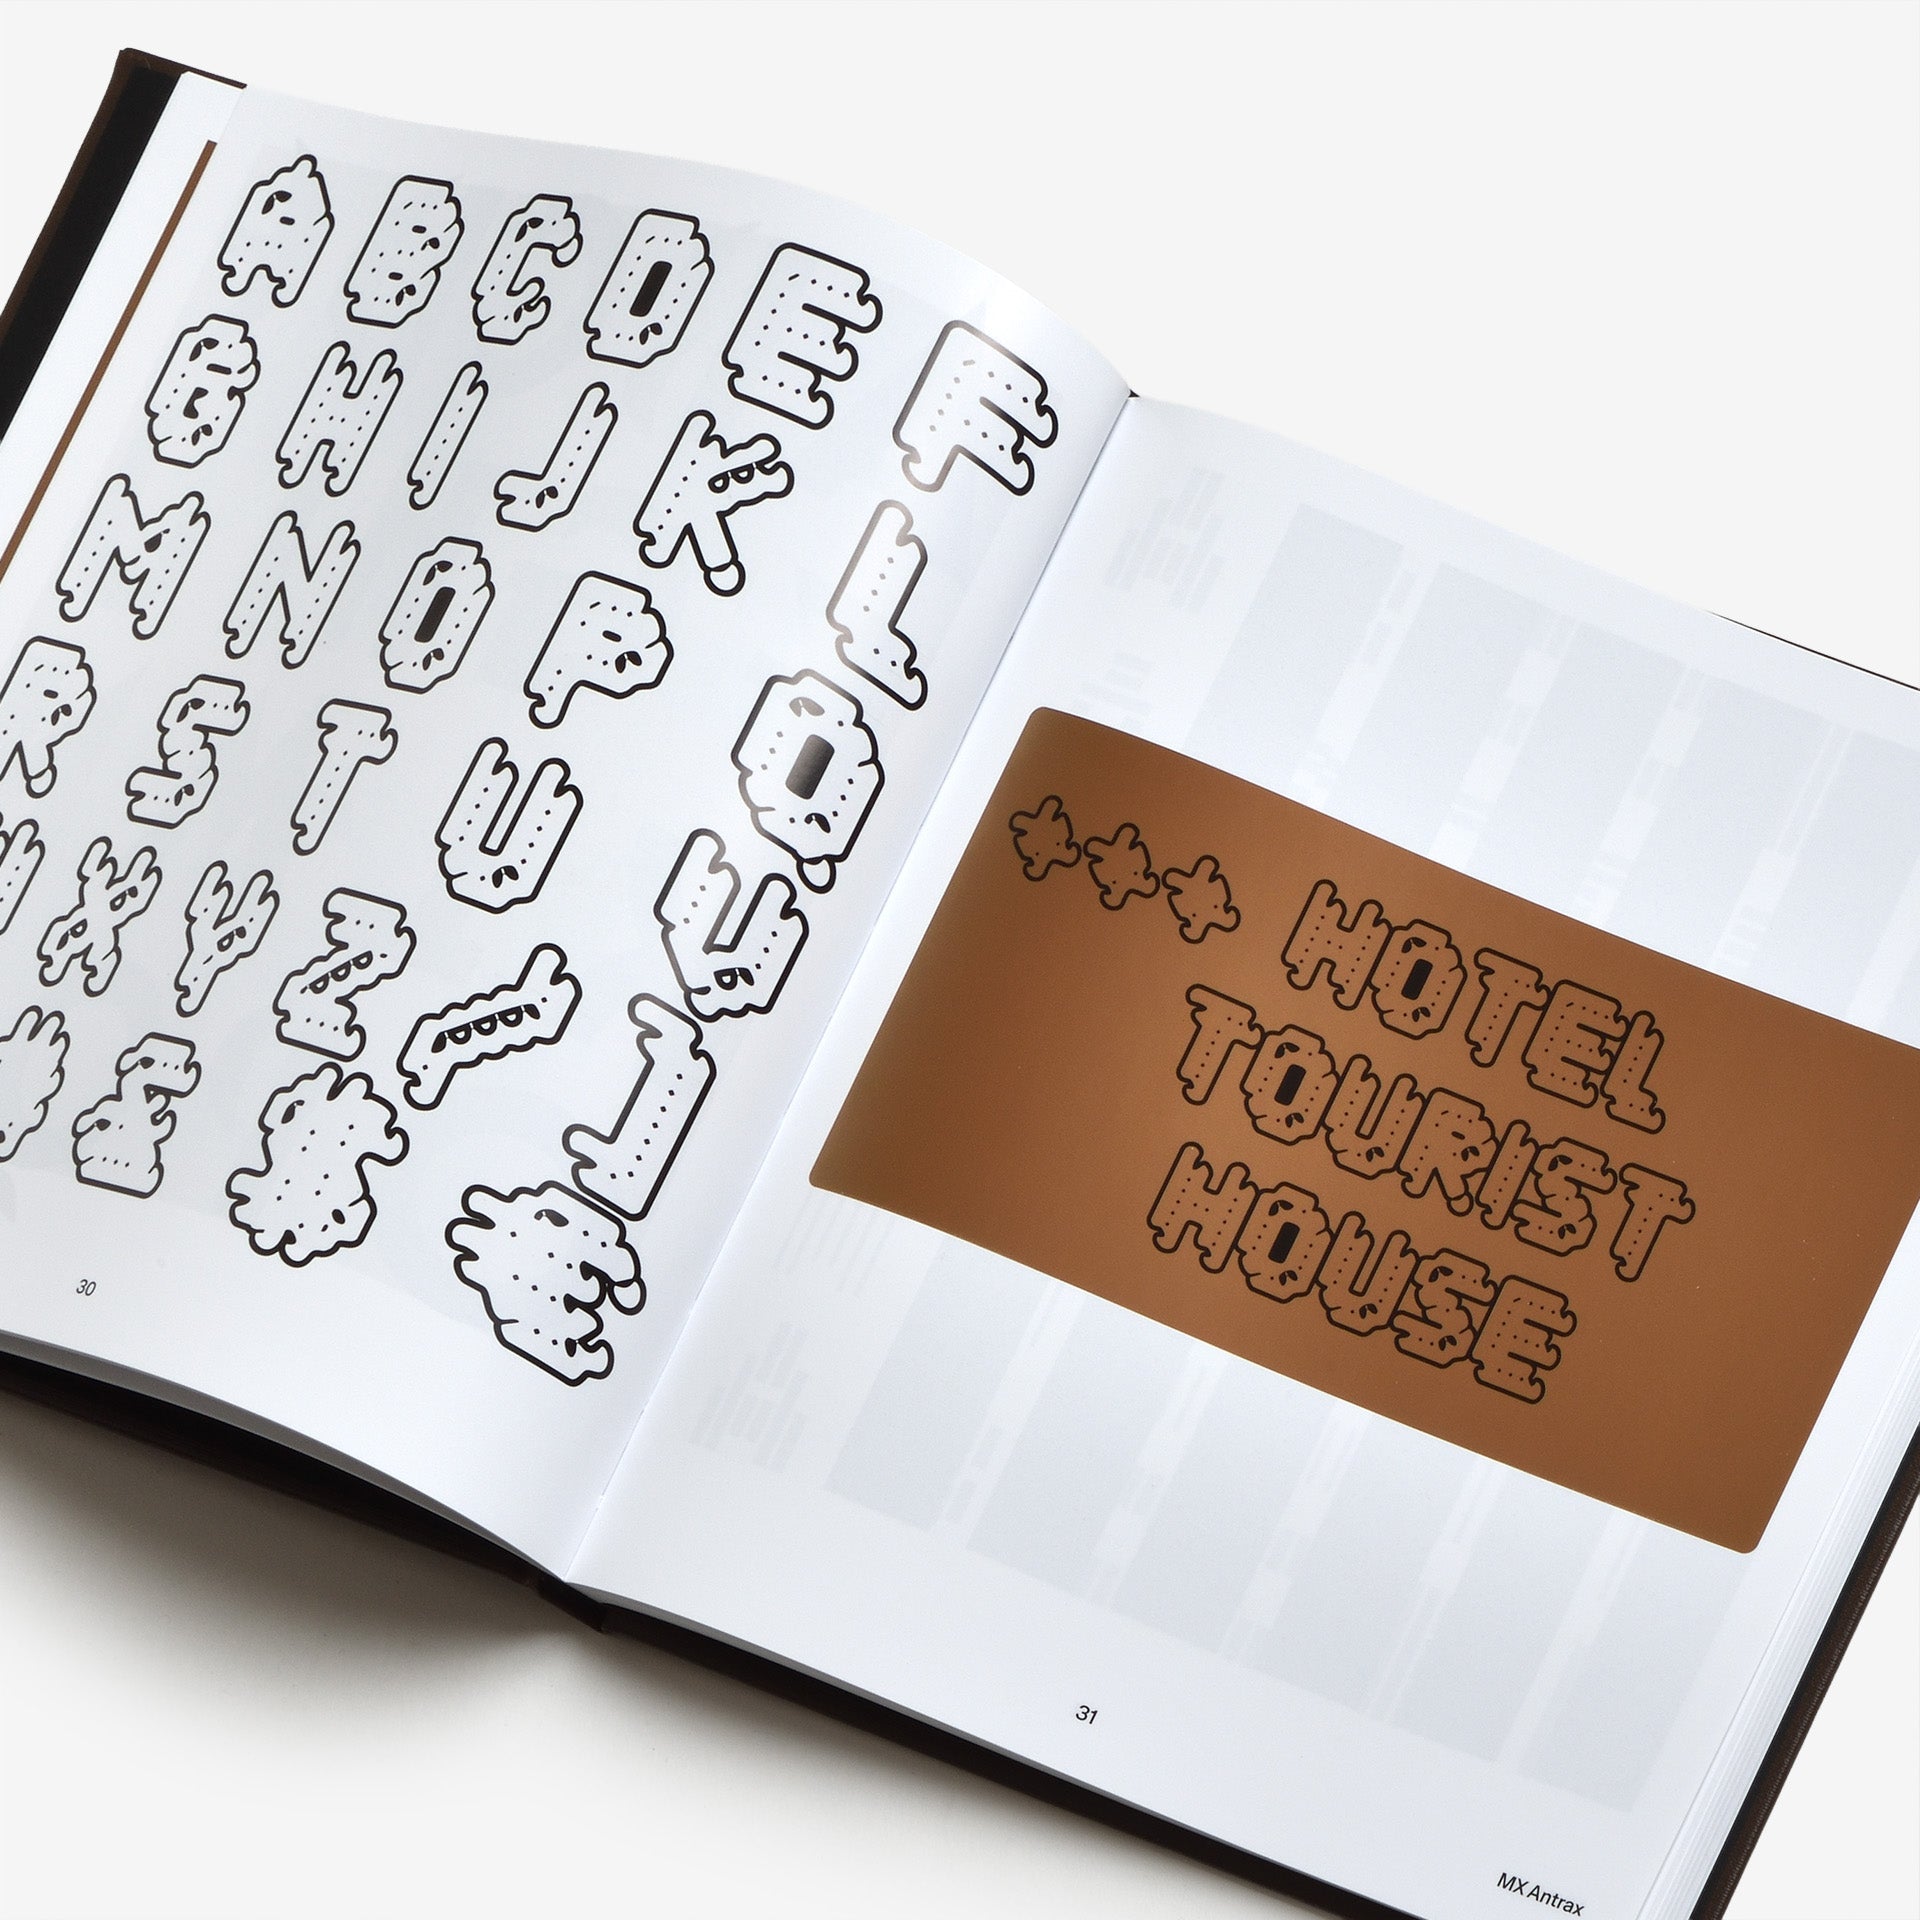 A B C D E F
G H I J K L
M N O P Q
R S T U V
X Y Z
30
HOTEL
TOURIST
HOUSE
31
MX Antrax